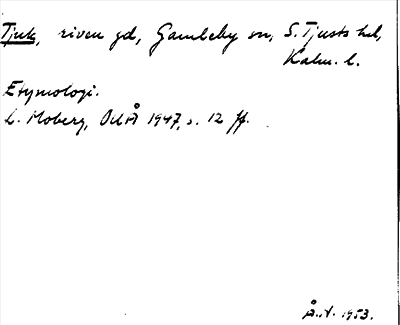 Tjuk, riven gd, Gamleby sn, S. Tjusts hd,
Kalm. l.
Etymologi.
L. Moberg, OUÅ 1947, s. 12 ff.
Å.N. 1953.